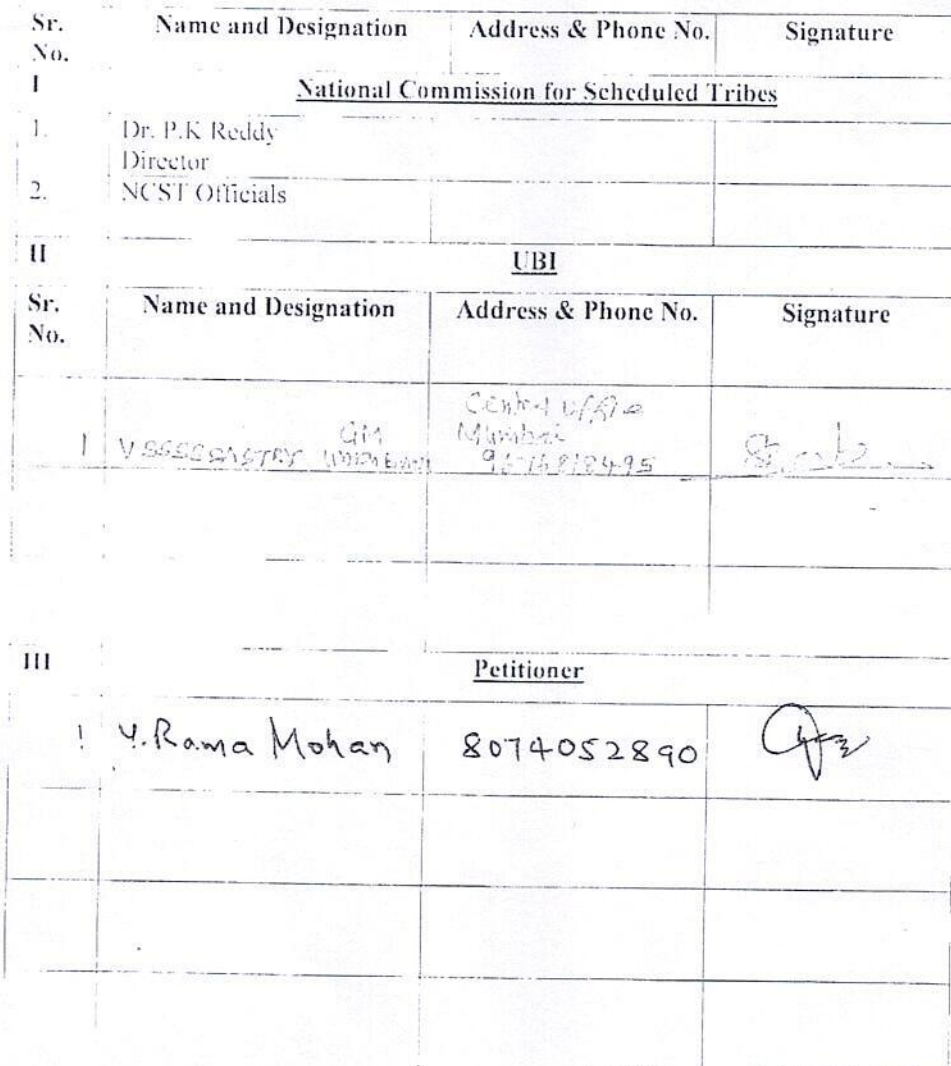 Sr. No. Name and Designation Address & Phone No. Signature
I National Commission for Scheduled Tribes
1. Dr. P.K Reddy
Director
2. NCST Officials
II UBI
Sr. No. Name and Designation Address & Phone No. Signature
Central office
1 GM Mumbai
III Petitioner
1 Y. Rama Mohan 8074052890